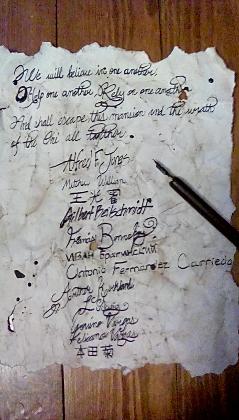 We will believe in one another,
Help one another, Rely on one another
And shall escape this mansion and the wrath
of the Oni all together.
Alfred F. Jones
Mathew Williams
王耀
Gilbert Beilschmidt
Francis Bonnefoy
Иван Брагинский
Antonio Fernandez Carriedo
Arthur Kirkland
Ludwig
Vargas
Feliciano Vargas
本田 菊